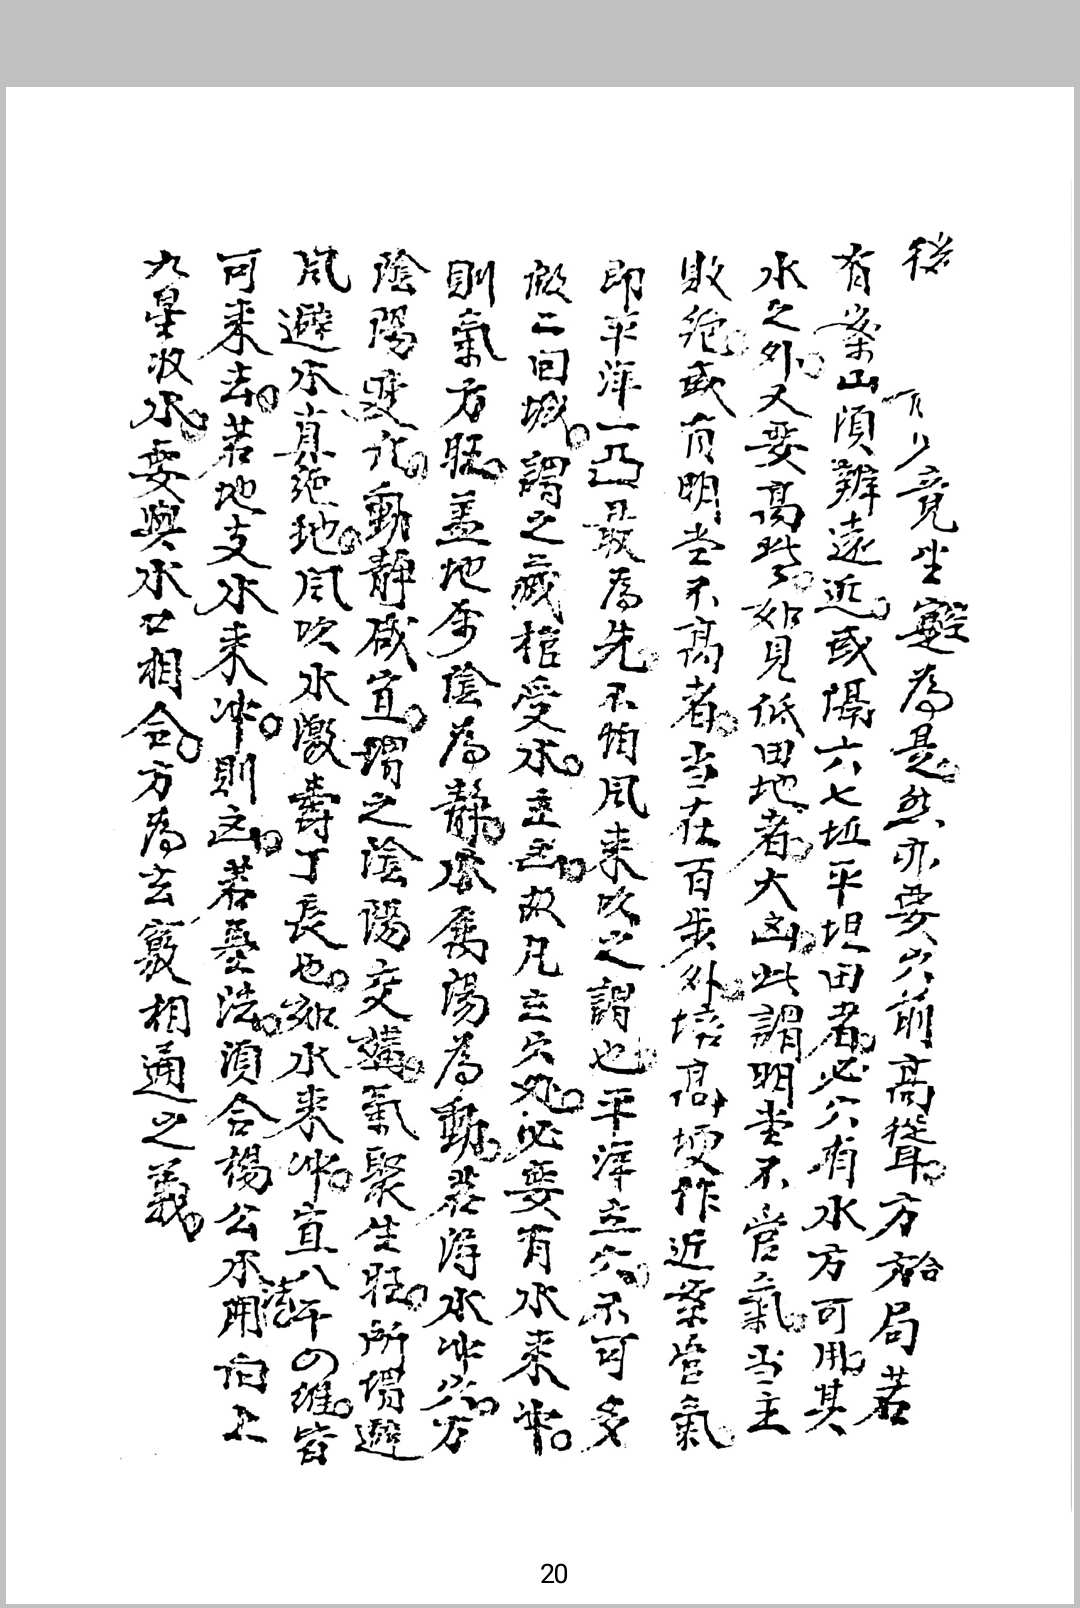 後 竟坐竅為是。然亦要穴前高聳。方合局若
有案山須辨遠近。或隔六七坵平坦田者。必穴有水方可用。其
水之外。又要高些。如見低田地者。大凶。此謂明堂不管氣。当主
敗絕。或有明堂不高者。当在百步外。培高埂作近案管氣。
即平洋一凸最為先。不怕風來吹之謂也。平洋立穴。不可多
做二回城。謂之藏棺受水。立凶。故凡立穴処。必要有水來冲。
則氣方旺。盖地属陰為靜。水属陽為動。若得水冲穴。方
陰陽变化。動靜咸宜。謂之陰陽交媾。氣聚生旺。所謂避
風避水真絕地。風吹水激壽丁長也。如水來冲。宜八干四維。皆
可來去。若地支水來冲。則凶。若葬法。須合楊公水法用向上
九星收水。要與水口相合。方為玄竅相通之義。
20